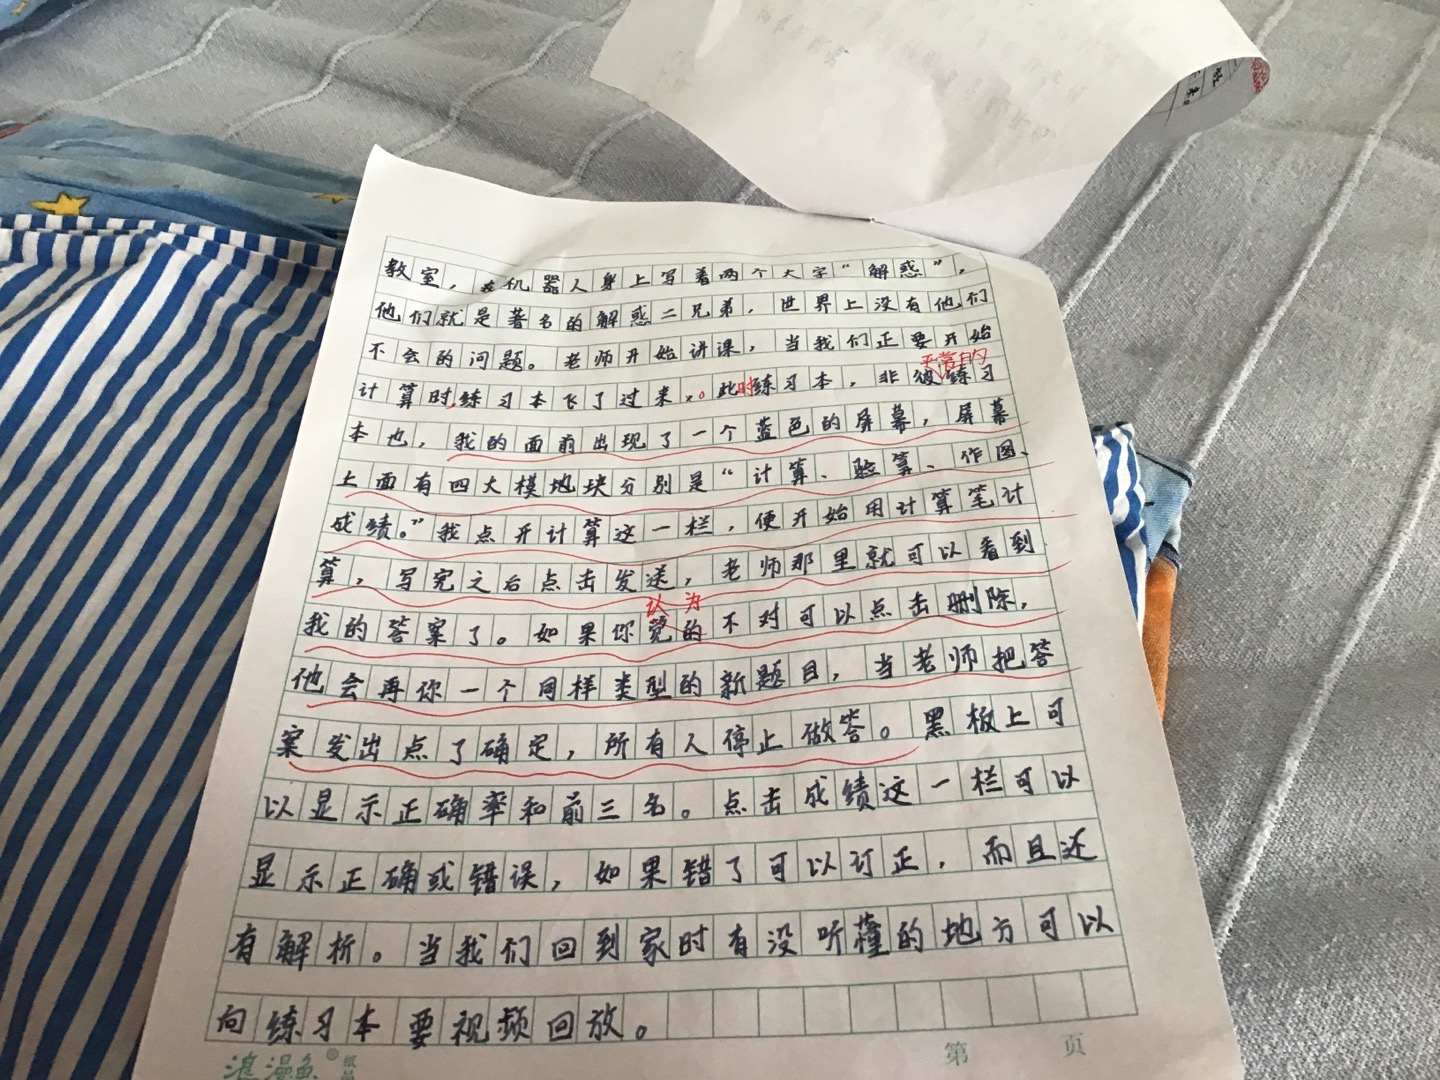 教室，在机器人身上写着两个大字“解惑”，
他们就是著名的解惑二兄弟，世界上没有他们
不会的问题。老师开始讲课，当我们正要开始
平常的
计算时，练习本飞了过来。此时练习本，非彼练习
本也，我的面前出现了一个蓝色的屏幕，屏幕
上面有四大模地块分别是“计算、验算、作图、
成绩。”我点开计算这一栏，便开始用计算笔计
算，写完之后点击发送，老师那里就可以看到
认为
我的答案了。如果你觉的不对可以点击删除，
他会再你一个同样类型的新题目，当老师把答
案发出点了确定，所有人停止做答。黑板上可
以显示正确率和前三名。点击成绩这一栏可以
显示正确或错误，如果错了可以订正，而且还
有解析。当我们回到家时有没听懂的地方可以
向练习本要视频回放。
浪漫鱼®纸品
第 页